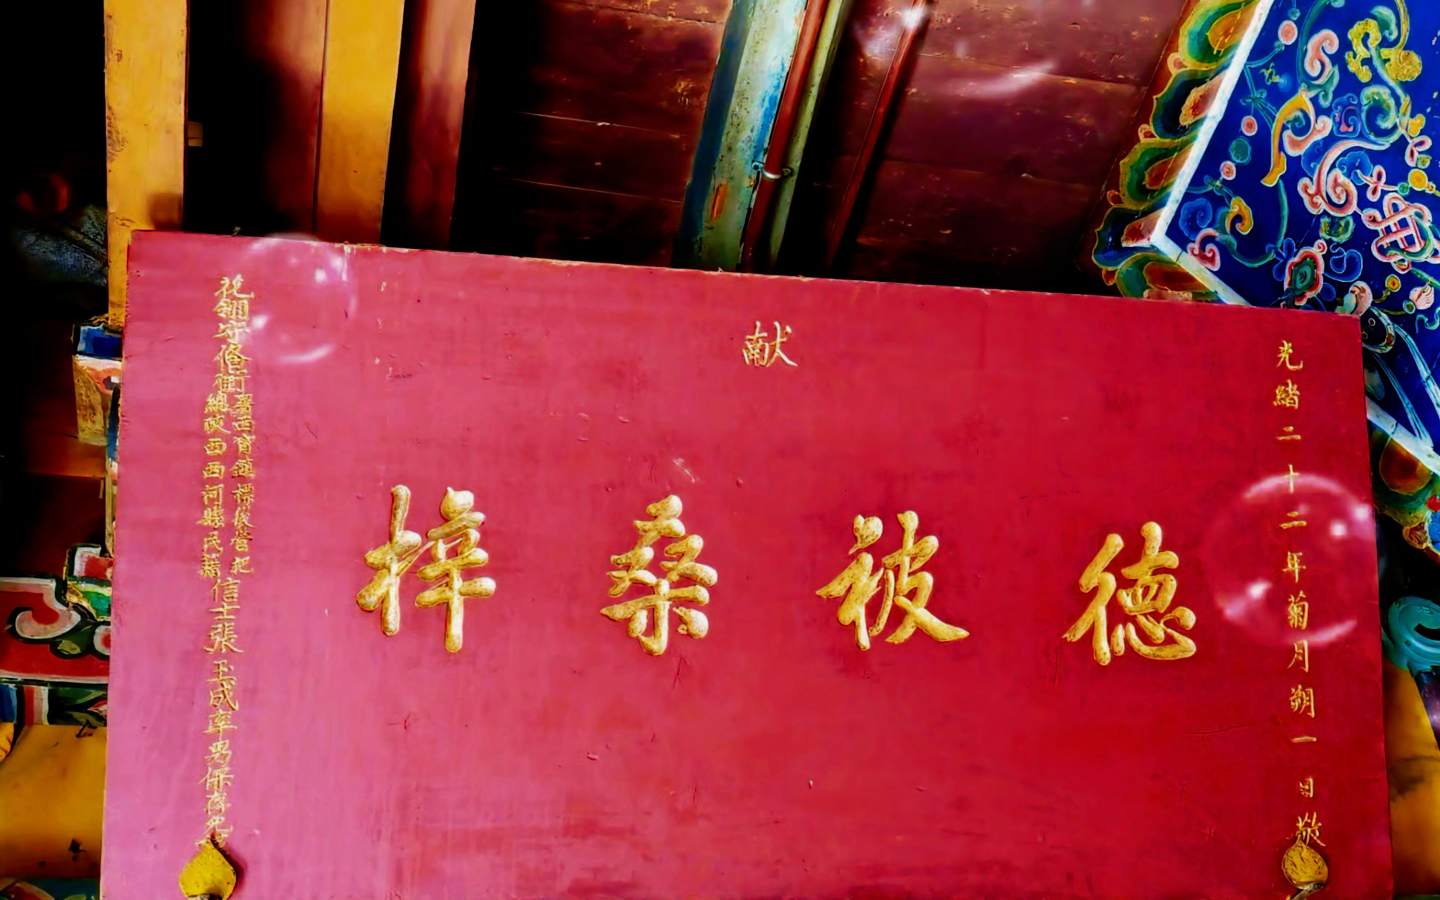 光緒二十二年菊月朔一日敬
献
德被桑梓
信士張玉成率男保
署西寶鎮標後營把
總陝西西河縣民籍